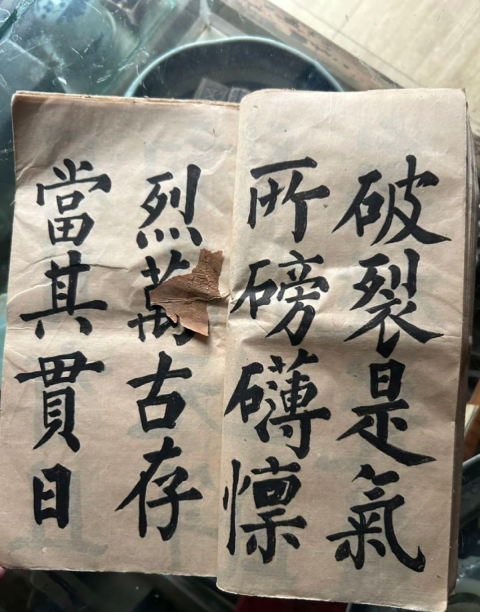 破裂是氣
所磅礴懍
烈萬古存
當其貫日